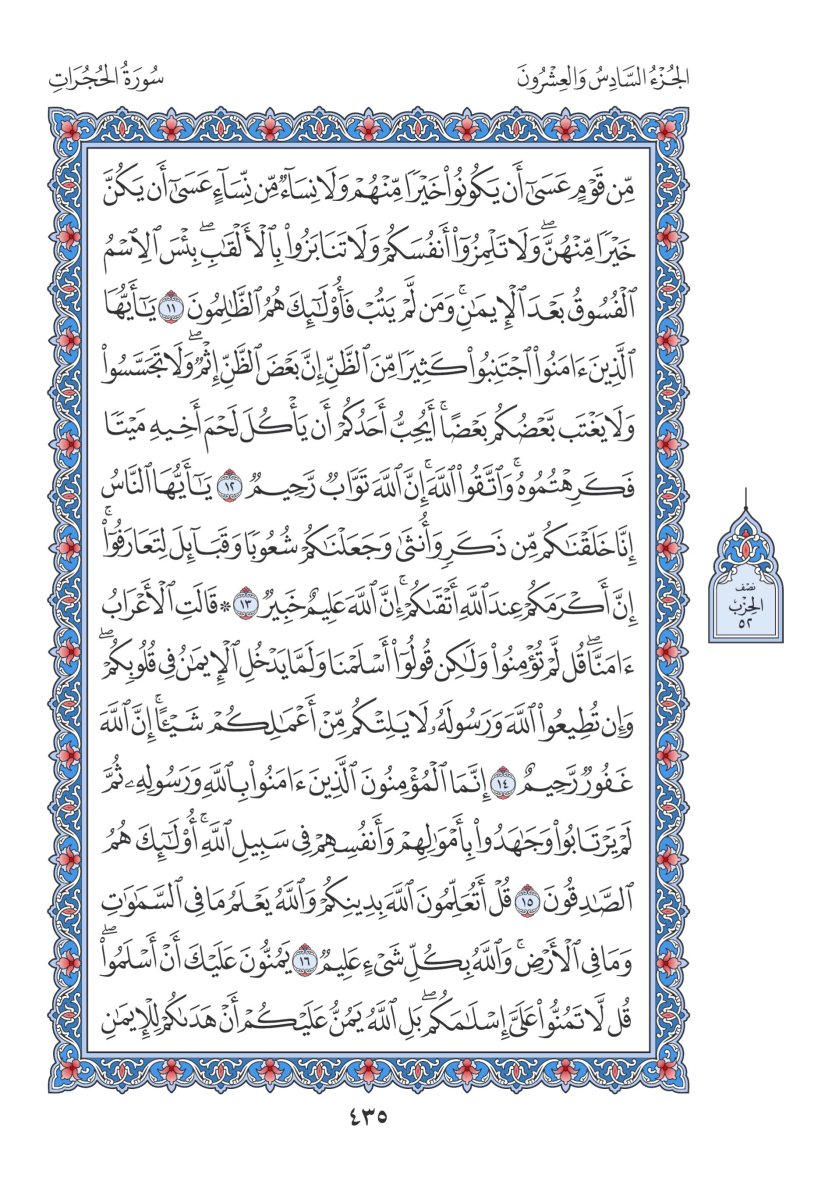 الجُزْءُ السَّادِسُ وَالعِشْرُونَ
سُورَةُ الحُجُرَاتِ
مِّن قَوۡمٍ عَسَىٰٓ أَن يَكُونُواْ خَيۡرٗا مِّنۡهُمۡ وَلَا نِسَآءٞ مِّن نِّسَآءٍ عَسَىٰٓ أَن يَكُنَّ
خَيۡرٗا مِّنۡهُنَّۖ وَلَا تَلۡمِزُوٓاْ أَنفُسَكُمۡ وَلَا تَنَابَزُواْ بِٱلۡأَلۡقَٰبِۖ بِئۡسَ ٱلِٱسۡمُ
ٱلۡفُسُوقُ بَعۡدَ ٱلۡإِيمَٰنِۚ وَمَن لَّمۡ يَتُبۡ فَأُوْلَٰٓئِكَ هُمُ ٱلظَّٰلِمُونَ ١١ يَٰٓأَيُّهَا
ٱلَّذِينَ ءَامَنُواْ ٱجۡتَنِبُواْ كَثِيرٗا مِّنَ ٱلظَّنِّ إِنَّ بَعۡضَ ٱلظَّنِّ إِثۡمٞۖ وَلَا تَجَسَّسُواْ
وَلَا يَغۡتَب بَّعۡضُكُم بَعۡضًاۚ أَيُحِبُّ أَحَدُكُمۡ أَن يَأۡكُلَ لَحۡمَ أَخِيهِ مَيۡتٗا
فَكَرِهۡتُمُوهُۚ وَٱتَّقُواْ ٱللَّهَۚ إِنَّ ٱللَّهَ تَوَّابٞ رَّحِيمٞ ١٢ يَٰٓأَيُّهَا ٱلنَّاسُ
إِنَّا خَلَقۡنَٰكُم مِّن ذَكَرٖ وَأُنثَىٰ وَجَعَلۡنَٰكُمۡ شُعُوبٗا وَقَبَآئِلَ لِتَعَارَفُوٓاْۚ
إِنَّ أَكۡرَمَكُمۡ عِندَ ٱللَّهِ أَتۡقَىٰكُمۡۚ إِنَّ ٱللَّهَ عَلِيمٌ خَبِيرٞ ١٣ ۞ قَالَتِ ٱلۡأَعۡرَابُ
ءَامَنَّاۖ قُل لَّمۡ تُؤۡمِنُواْ وَلَٰكِن قُولُوٓاْ أَسۡلَمۡنَا وَلَمَّا يَدۡخُلِ ٱلۡإِيمَٰنُ فِي قُلُوبِكُمۡۖ
وَإِن تُطِيعُواْ ٱللَّهَ وَرَسُولَهُۥ لَا يَلِتۡكُم مِّنۡ أَعۡمَٰلِكُمۡ شَيۡـًٔاۚ إِنَّ ٱللَّهَ
غَفُورٞ رَّحِيمٌ ١٤ إِنَّمَا ٱلۡمُؤۡمِنُونَ ٱلَّذِينَ ءَامَنُواْ بِٱللَّهِ وَرَسُولِهِۦ ثُمَّ
لَمۡ يَرۡتَابُواْ وَجَٰهَدُواْ بِأَمۡوَٰلِهِمۡ وَأَنفُسِهِمۡ فِي سَبِيلِ ٱللَّهِۚ أُوْلَٰٓئِكَ هُمُ
ٱلصَّٰدِقُونَ ١٥ قُلۡ أَتُعَلِّمُونَ ٱللَّهَ بِدِينِكُمۡ وَٱللَّهُ يَعۡلَمُ مَا فِي ٱلسَّمَٰوَٰتِ
وَمَا فِي ٱلۡأَرۡضِۚ وَٱللَّهُ بِكُلِّ شَيۡءٍ عَلِيمٞ ١٦ يَمُنُّونَ عَلَيۡكَ أَنۡ أَسۡلَمُواْۖ
قُل لَّا تَمُنُّواْ عَلَيَّ إِسۡلَٰمَكُمۖ بَلِ ٱللَّهُ يَمُنُّ عَلَيۡكُمۡ أَنۡ هَدَىٰكُمۡ لِلۡإِيمَٰنِ
نصف
الحزب
٥٢
٤٣٥